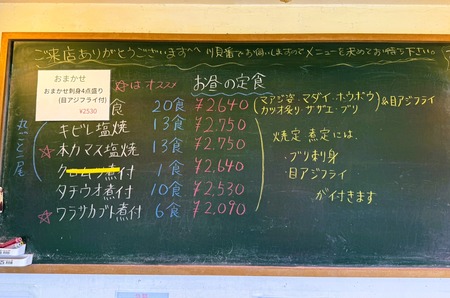 ご来店ありがとうございます^^ 順番でお伺いしますのでメニューを決めてお待ち下さい
おまかせ
おまかせ刺身4点盛り
(目アジフライ付)
¥2530
☆はオススメ
お昼の定食
食 20食 ¥2,640 (マアジ姿・マダイ・ホウボウ カツオ炙り・サザエ・ブリ)&目アジフライ
丸ごと一尾
キビレ塩焼 13食 ¥2,750
☆本カマス塩焼 13食 ¥2,750
煮付 1食 ¥2,640
タチウオ煮付 10食 ¥2,530
☆ワラサカブト煮付 6食 ¥2,090
焼定 煮定には
ブリ刺身
目アジフライ
が付きます